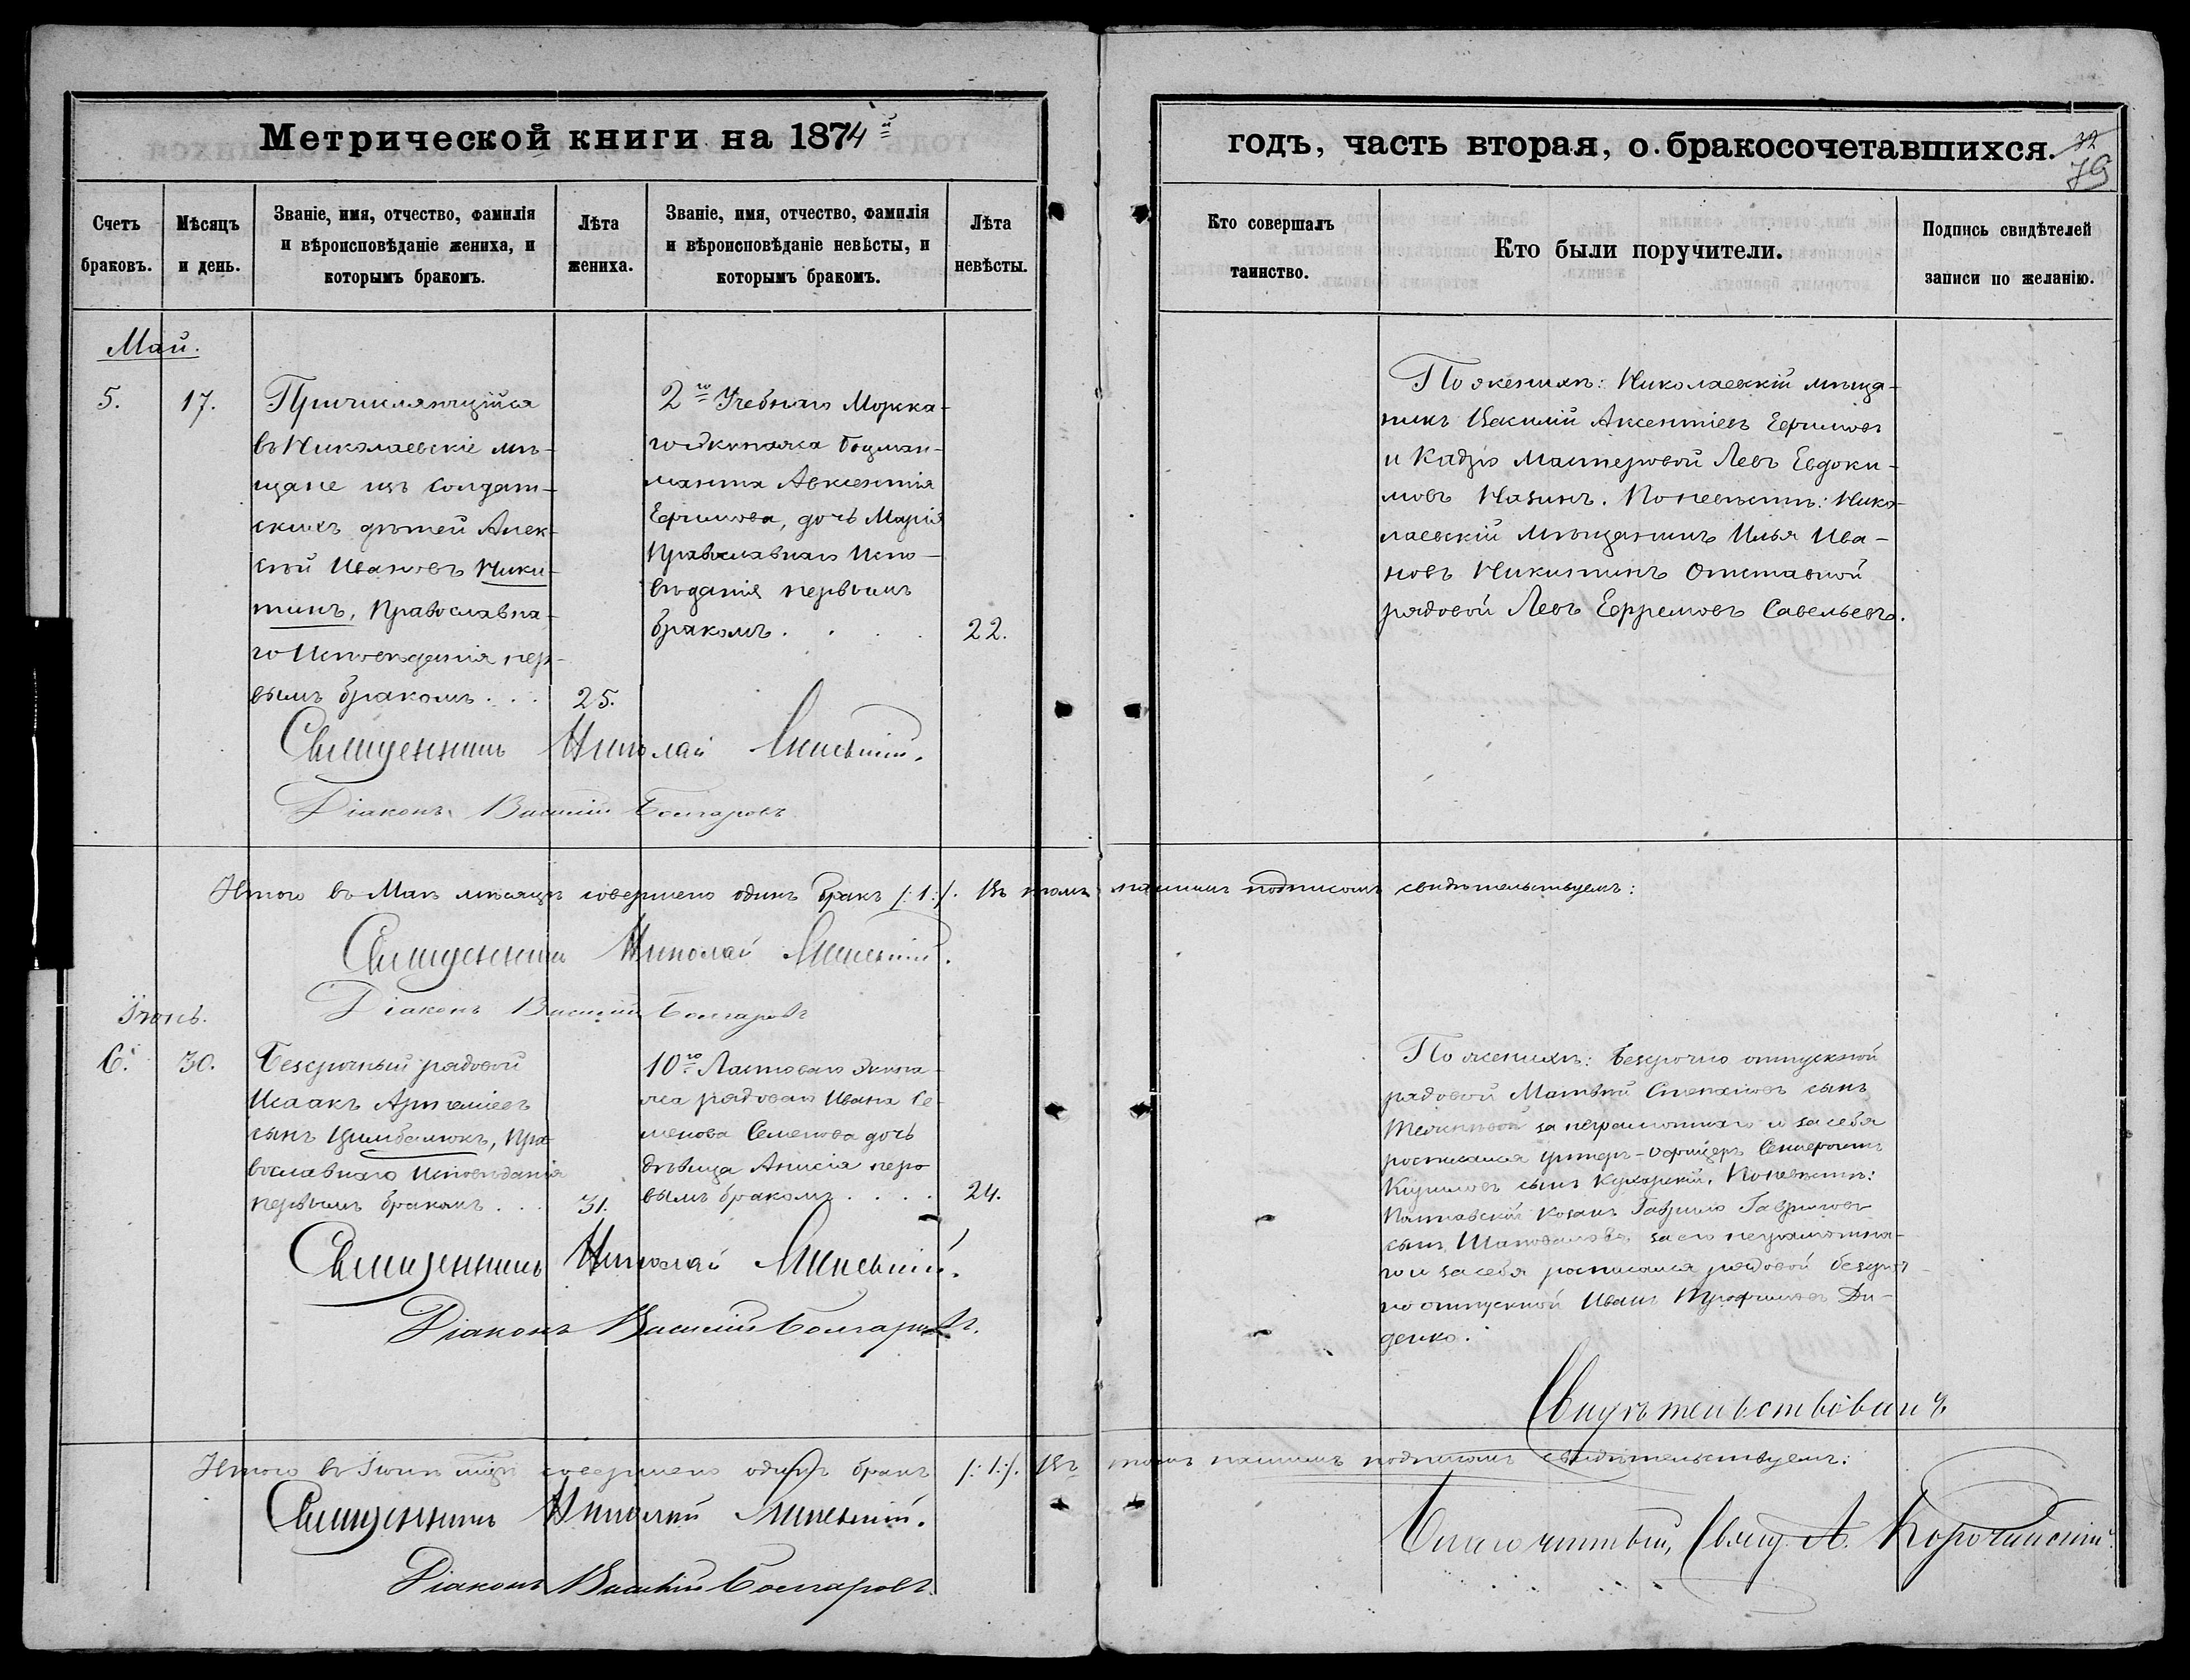 Метрической книги на 1874й
годъ, часть вторая, о бракосочетавшихся.
32
79
Счетъ
браковъ.
Мѣсяцъ
и день.
Званіе, имя, отчество, фамилія
и вѣроисповѣданіе жениха, и
которымъ бракомъ.
Лѣта
жениха.
Званіе, имя, отчество, фамилія
и вѣроисповѣданіе невѣсты, и
которымъ бракомъ.
Лѣта
невѣсты.
Кто совершалъ
таинство.
Кто были поручители.
Подпись свидѣтелей
записи по желанію.
Май.
5.
17.
Причисляющійся
въ Николаевскіе мѣ-
щане изъ солдат-
скихъ дѣтей Алек-
сѣй Ивановъ Ники-
тинъ, Православна-
го Исповѣданія пер-
вымъ бракомъ . . .
25.
2го Учебнаго Морска-
го Экипажа Боцман-
мата Авксентія
Ефимова, дочь Марія
Православнаго Испо-
вѣданія первымъ
бракомъ . . . .
22.
По женихѣ: Николаевскій мѣща-
нинъ Василій Аксентіевъ Ефимовъ
и Мастеровой Левъ Евдоки-
мовъ Назинъ. По невѣстѣ: Нико-
лаевскій Мѣщанинъ Илья Ива-
новъ Никитинъ Отставной
рядовой Левъ Ефремовъ Савельевъ.
Священникъ Николай
Діаконъ Василій Болгаровъ
Итого въ Маѣ мѣсяцѣ совершено одинъ бракъ /:1:/. Въ томъ нашимъ подписомъ свидѣтельствуемъ:
Священникъ Николай
Діаконъ Василій Болгаровъ
Іюнь.
6.
30.
Безсрочный рядовой
Исаакъ Артеміевъ
сынъ Цимбалюкъ, Пра-
вославнаго Исповѣданія
первымъ бракомъ . . .
31.
10го Ластоваго Экипа-
жа рядоваго Ивана Се-
менова Семенова дочь
дѣвица Анисія пер-
вымъ бракомъ . . . .
24.
По женихѣ: Безсрочно отпускной
рядовой Матвѣй Степановъ сынъ
за неграмотнаго и за себя
росписался унтеръ-офицеръ
Кириловъ сынъ По невѣстѣ:
Полтавскій козакъ Гаврило Гавриловъ
сынъ Шаповаловъ за его неграмотна-
го и за себя росписался рядовой безсроч-
но отпускной Иванъ Трофимовъ Ди-
денко.
Священникъ Николай
Діаконъ Василій Болгаровъ.
Свидѣтельствовалъ
Итого въ Іюнѣ мѣцѣ совершено одинъ бракъ /:1:/. Въ томъ нашимъ подписомъ свидѣтельствуемъ:
Священникъ Николай
Благочинный, Свящ. А.
Діаконъ Василій Болгаровъ.